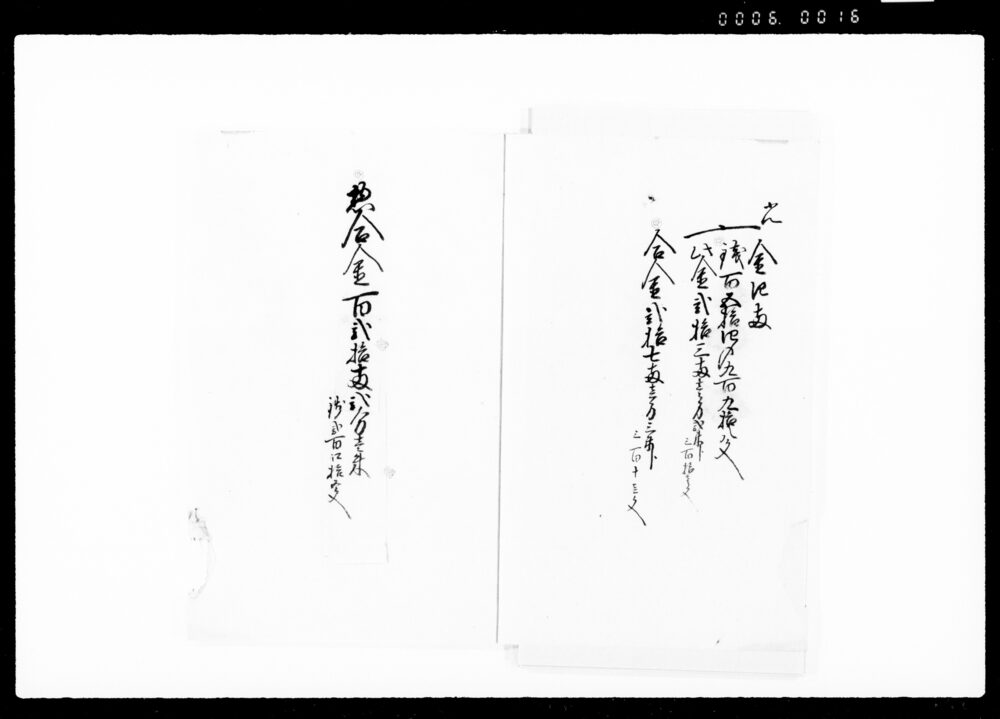 0006. 0016
金四両
一銭百五拾四メ九百九拾文
此金弐拾三両壱分弐朱ト
三百拾壱文
合金弐拾七両壱分三朱ト
三百十三文
惣合金百弐拾両弐分壱朱
銭弐百四拾文